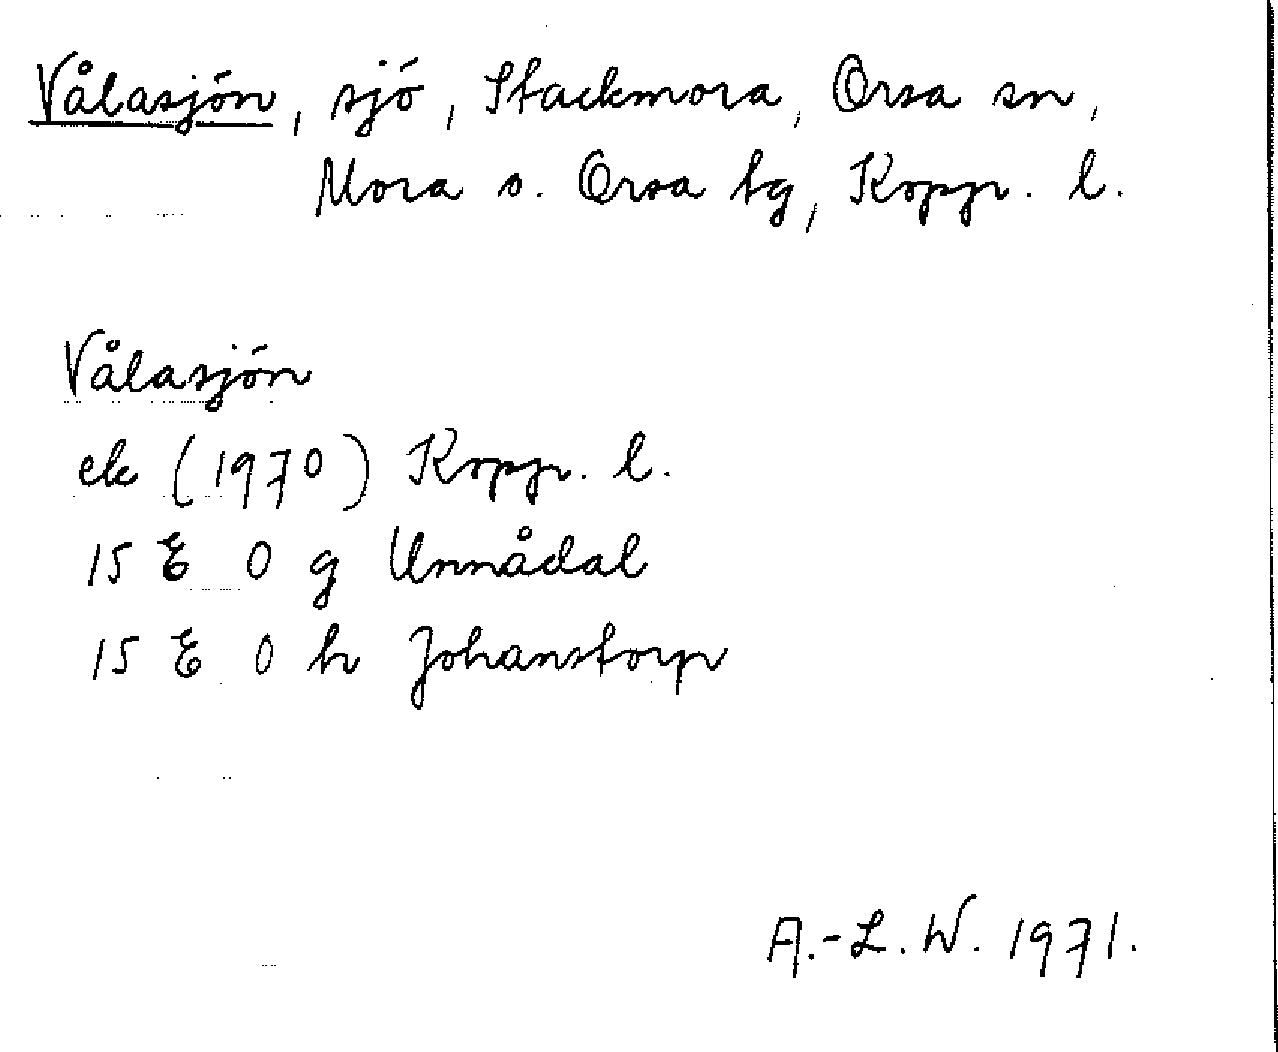 Vålasjön, sjö, Stackmora, Orsa sn,
Mora o. Orsa tg, Kopp. l.
Vålasjön
ek (1970) Kopp. l.
15 E 0 g Unnådal
15 E 0 h Johanstorp
A.-L. W. 1971.